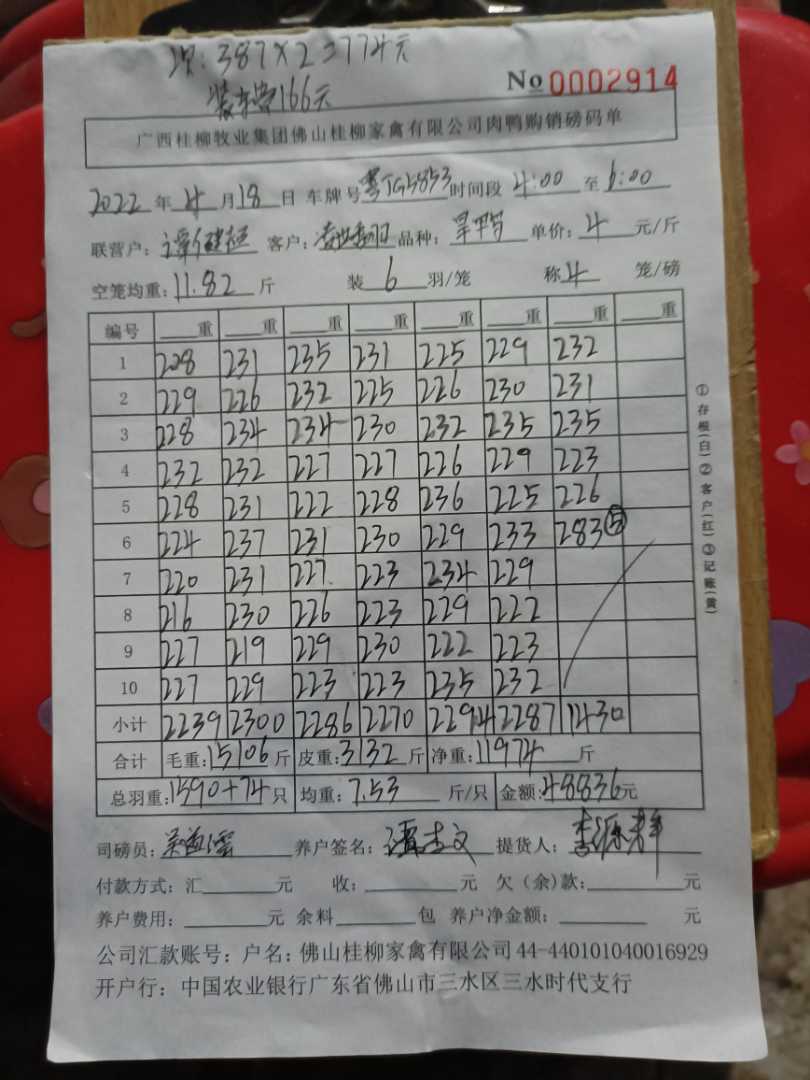 387×2=774元
装车费166元
No 0002914
广西桂柳牧业集团佛山桂柳家禽有限公司肉鸭购销磅码单
2022年4月18日 车牌号粤JG5853时间段4:00至6:00
联营户: 客户: 品种: 单价:4元/斤
空笼均重:11.82斤 装6羽/笼 称4笼/磅
编号 重 重 重 重 重 重 重 重
1 228 231 235 231 225 229 232
2 229 226 232 225 226 230 231
3 228 234 234 230 232 235 235
4 232 232 227 227 226 229 223
5 228 231 222 228 236 225 226
6 224 237 231 230 229 233 283⑤
7 220 231 227 223 234 229
8 216 230 226 223 229 222
9 227 219 229 230 222 223
10 227 229 223 223 235 232
小计 2239 2300 2286 2270 2294 2287 1430
合计 毛重:15106斤 皮重:3132斤 净重:11974斤
总羽重:1590+74只 均重:7.53斤/只 金额:48836元
司磅员: 养户签名:谭志文 提货人:李源群
付款方式:汇 元 收: 元 欠(余)款: 元
养户费用: 元 余料 包 养户净金额: 元
公司汇款账号:户名:佛山桂柳家禽有限公司44-440101040016929
开户行:中国农业银行广东省佛山市三水区三水时代支行
①存根(白)②客户(红)③记账(黄)